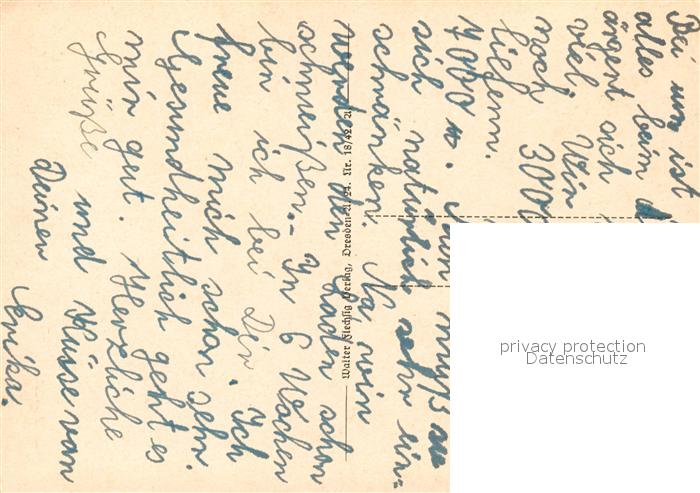 Bei uns ist
alles beim
ärgert sich
viel. Wir
noch 300
liefern.
7000 n. Nun muß er
sich natürlich sehr ein-
schränken. Na wir
werden den Laden schon
schmeißen. - In 6 Wochen
bin ich bei Dir. Ich
freue mich schon sehr.
Gesundheitlich geht es
mir gut. Herzliche
Grüße und Küsse von
Deiner Erika.
Walter Flechsig Verlag, Dresden-A. 24. Nr. 18/42/21
privacy protection
Datenschutz